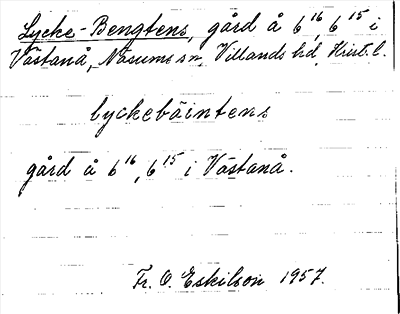 Lycke-Bengtens, gård å 6¹⁶, 6¹⁵ i
Västanå, Näsums sn, Villands hd, Krist. l.
lyckebäintens
gård å 6¹⁶, 6¹⁵ i Västanå.
Fr. O. Eskilson 1957.